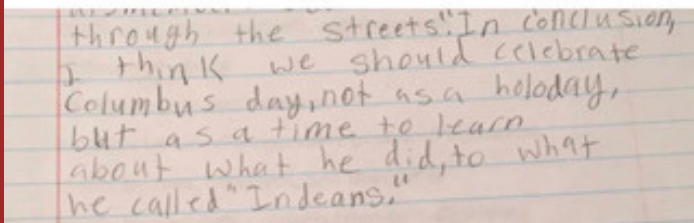 through the streets". In conclusion,
I think we should celebrate
Columbus day, not as a holoday,
but as a time to learn
about what he did, to what
he called "Indeans."